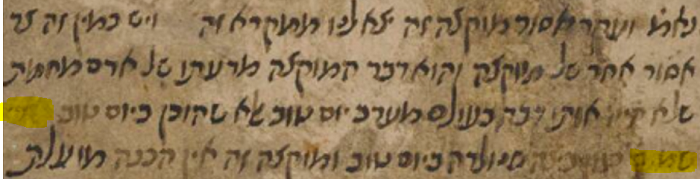 נאמ' ועקר אסור מוקצה זה יצא לנו ממקרא זה ויש כמין זה עוד
אסור אחר של מוקצה והוא דבר המוקצה מדעתו של אדם מחמת
שלא היה אותו דבר בעולם מערב יום טוב שלא שהוכן ביום טוב
שנולדה ביום טוב ומוקצה זה אין הכנה מועלת